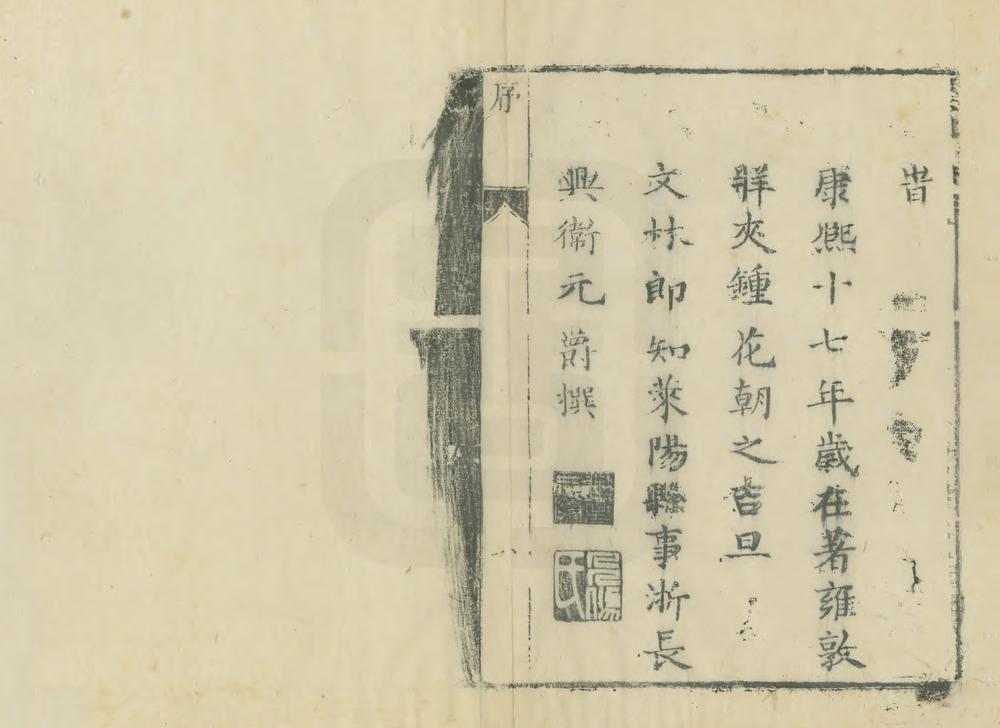 旹
康熙十七年歲在著雍敦
牂夾鍾花朝之吉旦
文林郎知萊陽縣事浙長
興衞元爵撰
序